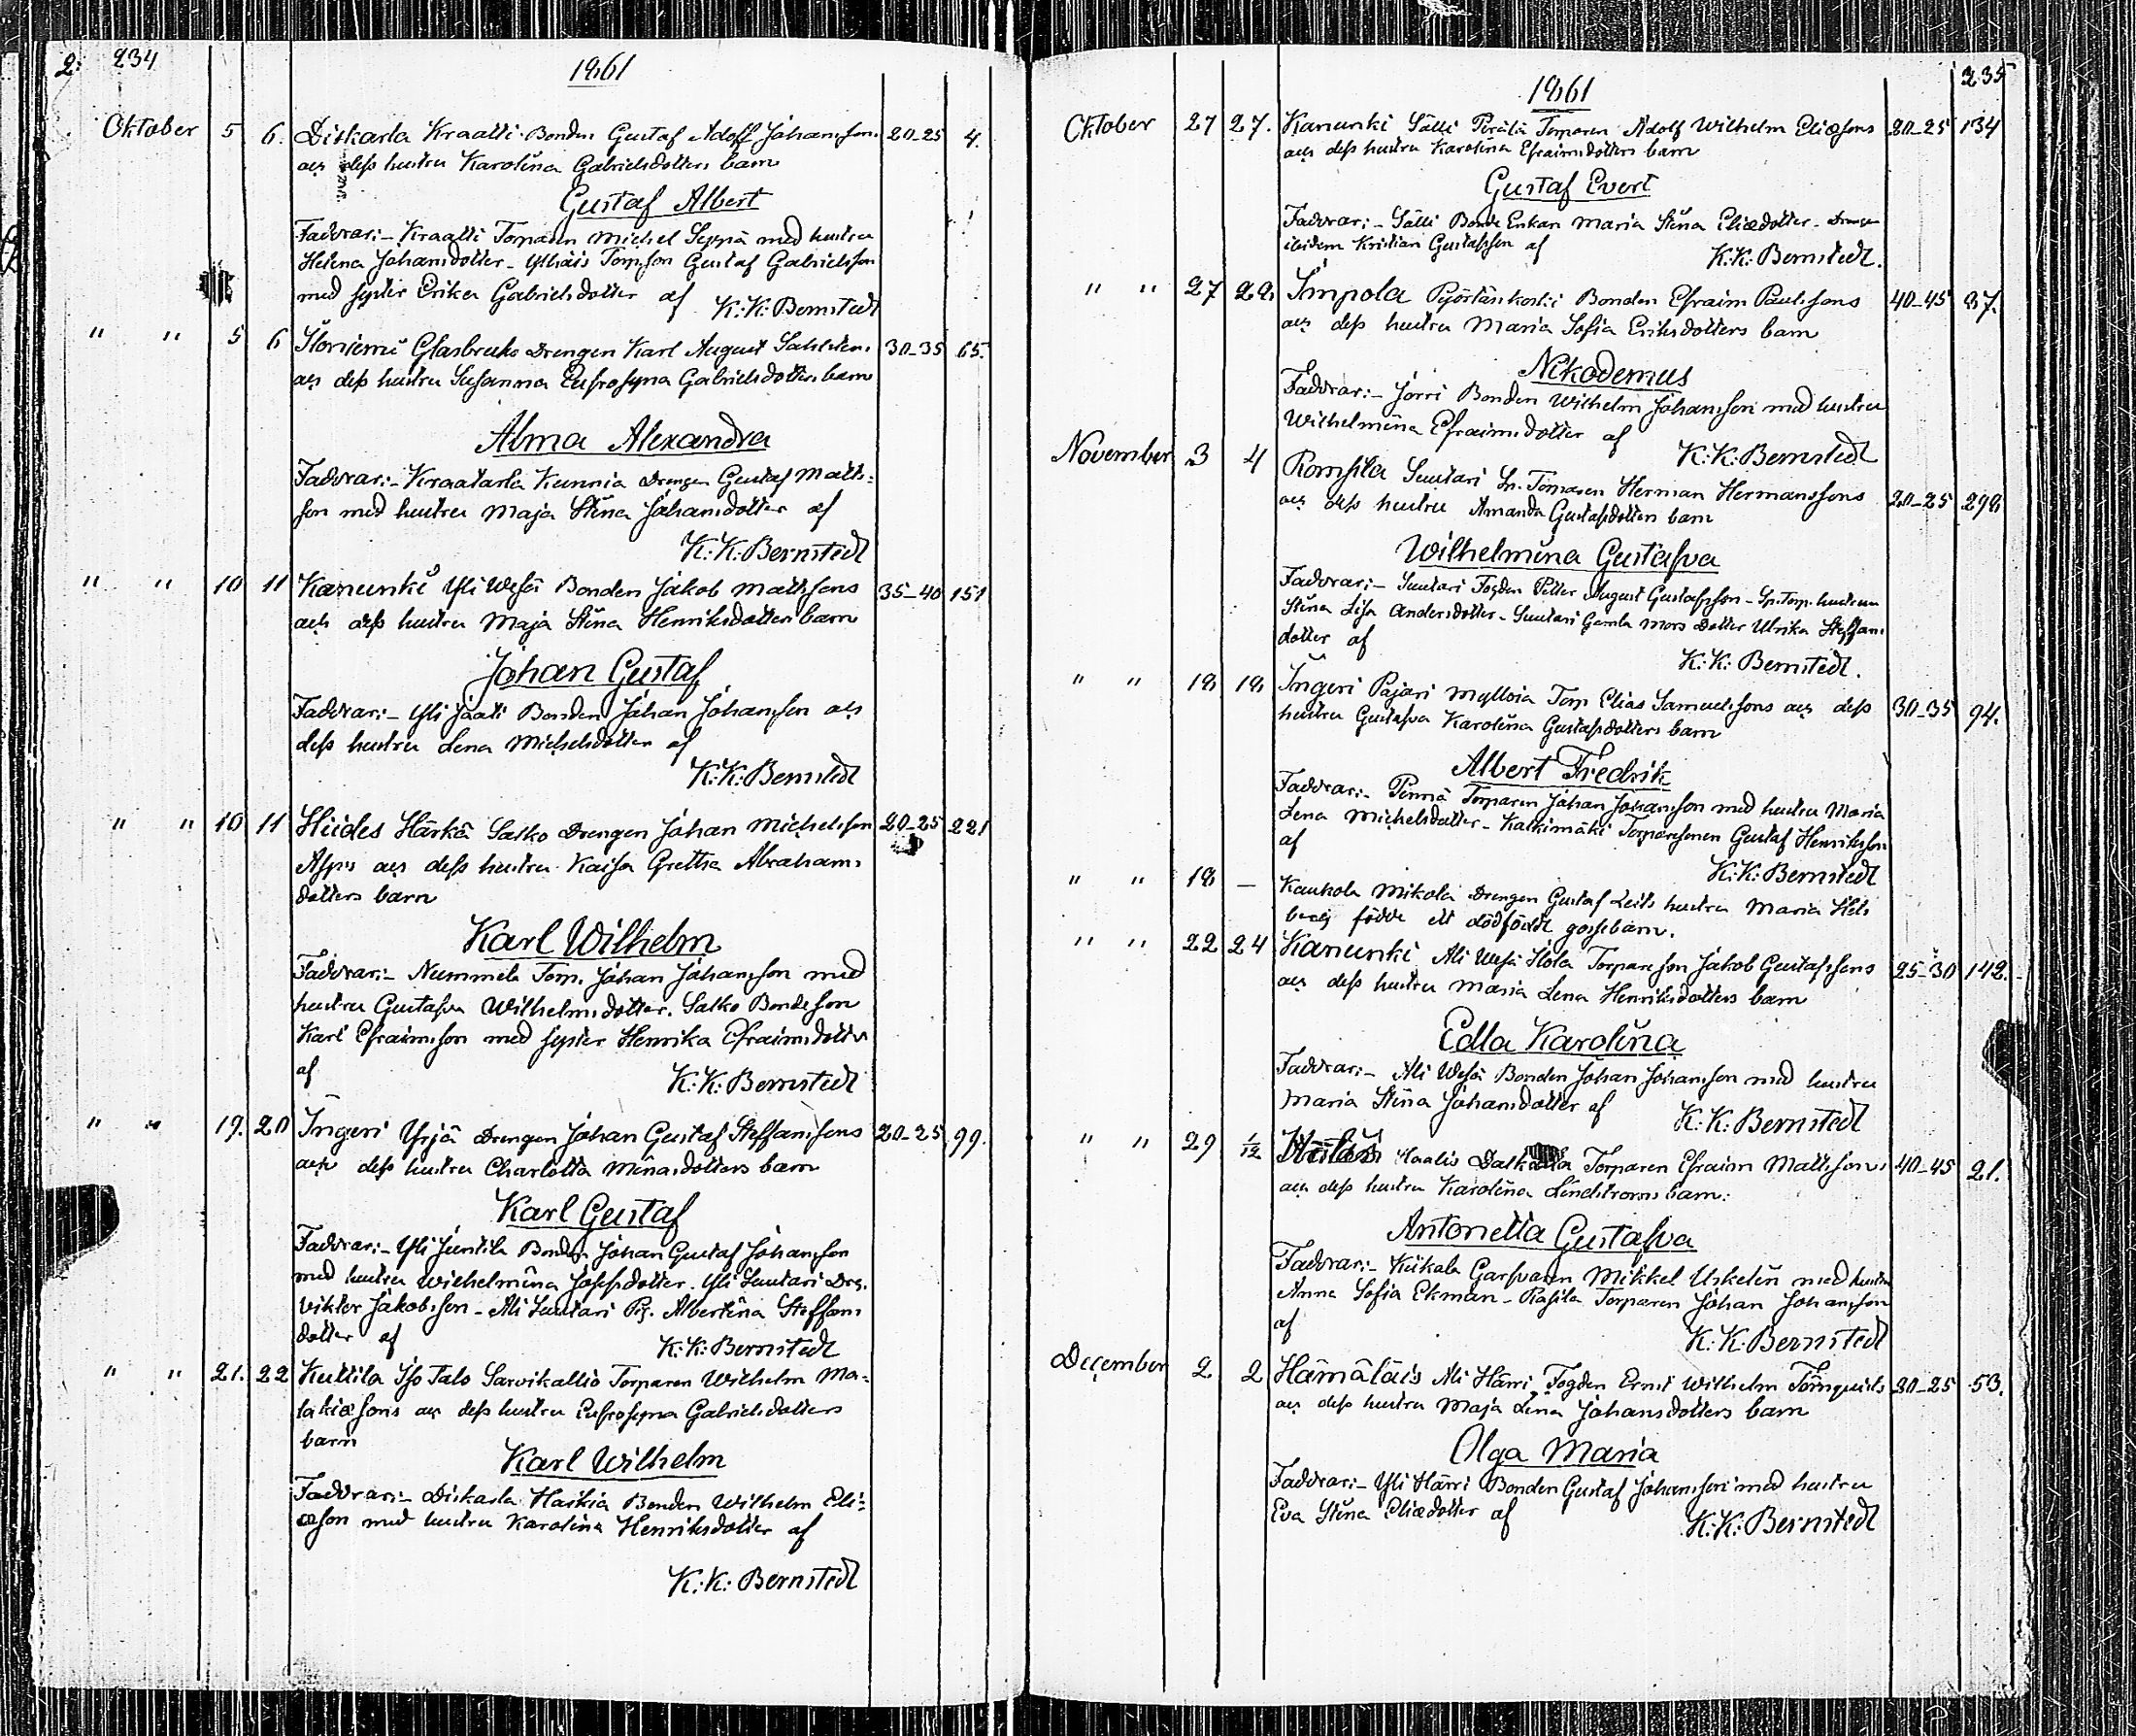 2. 234
1861
Oktober 5 6. Diskarla Kraatti Bonden Gustaf Adolf Johansson 20-25 4.
och dess hustru Karolina Gabrielsdotters barn
Gustaf Albert
Faddrar:- Kraatti Torparen Michel Seppä med hustru
Helena Johansdotter - Torp.son Gustaf Gabrielsson
med syster Erika Gabrielsdotter af K:K: Bernstedt
" " 5 6 Glasbruks Drengen Karl August 30-35 65.
och dess hustru Susanna Eufrosyna Gabrielsdotters barn
Alma Alexandra
Faddrar:- Kraatarla Kunnia Drengen Gustaf Matts-
son med hustru Maja Stina Johansdotter af
K:K: Bernstedt
" " 10 11 Kanunki Yli Wesa Bonden Jakob Mattssons 35-40 151
och dess hustru Maja Stina Henriksdotters barn
Johan Gustaf
Faddrar:- Yli Jaati Bonden Johan Johansson och
dess hustru Lena Michelsdotter af
K:K: Bernstedt
" " 10 11 Hiides Härkä Salko Drengen Johan Michelsson 20-25 221
och dess hustru Kaisa Gretha Abrahams
dotters barn
Karl Wilhelm
Faddrar:- Nummela Torp. Johan Johansson med
hustru Gustafva Wilhelmsdotter. Salko Bondeson
Karl Efraimsson med syster Henrika Efraimsdotter
af K:K: Bernstedt
" " 19. 20 Ingeri Yrjä Drengen Johan Gustaf Steffanssons 20-25 99.
och dess hustru Charlotta Minasdotters barn
Karl Gustaf
Faddrar:- Yli Juntila Bonden Johan Gustaf Johansson
med hustru Wilhelmina Josefsdotter. Yli Suutari Dr.
Viktor Jakobsson - Ali Suutari Pig. Albertina Steffans
dotter af K:K: Bernstedt
" " 21. 22 Kuttila Iso Talo Sarvikallio Torparen Wilhelm Ma-
lakiæsons och dess hustru Eufrosyna Gabrielsdotters
barn
Karl Wilhelm
Faddrar:- Diskarla Haikia Bonden Wilhelm Eli-
æson med hustru Karolina Henriksdotter af
K:K: Bernstedt
235
1861
Oktober 27 27. Kanunki Sälli Perälä Torparen Adolf Wilhelm Eliæsons 20-25 134
och dess hustru Karolina Efraimsdotters barn
Gustaf Evert
Faddrar:- Sälli Bonde Enkan Maria Stina Eliædotter - Drengen
ibidem Kristian Gustafsson af K:K: Bernstedt.
" " 27 28. Impola Pyörtänkoski Bonden Efraim Paulssons 40-45 37.
och dess hustru Maria Sofia Eriksdotters barn
Nikodemus
Faddrar:- Jörri Bonden Wilhelm Johansson med hustru
Wilhelmina Efraimsdotter af
K:K: Bernstedt
November 3 4 Romsila Suutari Sp. Torparen Herman Hermanssons 20-25 298
och dess hustru Amanda Gustafsdotters barn
Wilhelmina Gustafva
Faddrar:- Suutari Fogden Petter August Gustafsson - Sp. Torp. hustrun
Stina Lisa Andersdotter - Suutari Gamla Mors Dotter Ulrika Steffans
dotter af
K:K: Bernstedt.
" " 18 18 Ingeri Pajari Mylloia Torp Elias Samuelssons och dess 30-35 94.
hustru Gustafva Karolina Gustafsdotters barn
Albert Fredrik
Faddrar:- Pennä Torparen Johan Johansson med hustru Maria
Lena Michelsdotter - Kalkimäki Torparesonen Gustaf Henriksson
af
K:K: Bernstedt
" " 18 - Kaukola Mikola Drengen Gustaf Leils hustru Maria
berg födde ett dödfödt gossebarn.
" " 22 24 Kanunki Ali Wesa Torpareson Jakob Gustafssons 25-30 142.
och dess hustru Maria Lena Henriksdotters barn
Edla Karolina
Faddrar:- Ali Wesa Bonden Johan Johansson med hustru
Maria Stina Johansdotter af K:K: Bernstedt
" " 29 1/12 Haalis Torparen Efraim Mattssons 40-45 21.
och dess hustru Karolina Lindstroms barn:
Antonetta Gustafva
Faddrar:- Kiikala Garfvaren Mikkel Uskelin med hustru
Anna Sofia Ekman - Rasila Torparen Johan Johansson
af
K:K: Bernstedt
December 2 2 Hämäläis Ali Härri Fogden Ernst Wilhelm Törnqvists 20-25 53.
och dess hustru Maja Lena Johansdotters barn
Olga Maria
Faddrar:- Yli Härri Bonden Gustaf Johansson med hustru
Eva Stina Eliædotter af K:K: Bernstedt